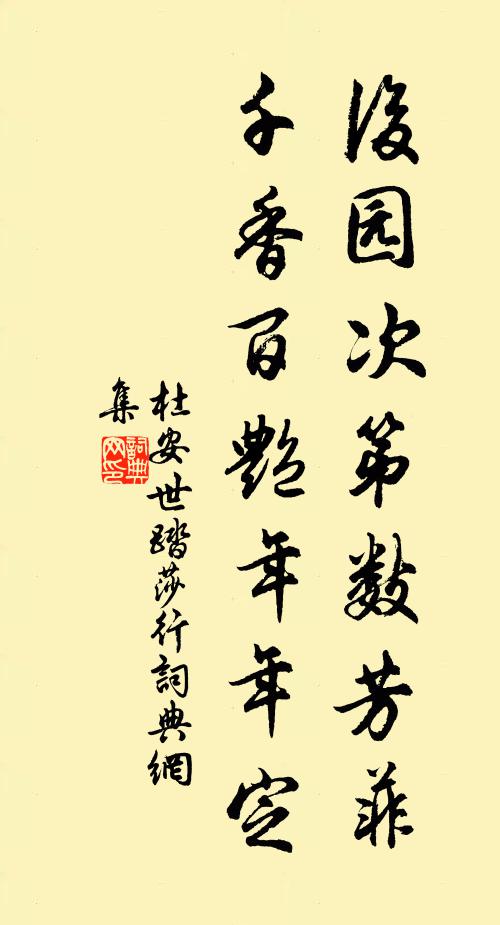 後园次第数芳菲
千香百艷年年定
杜安世踏莎行詞典網
集
詞典網印